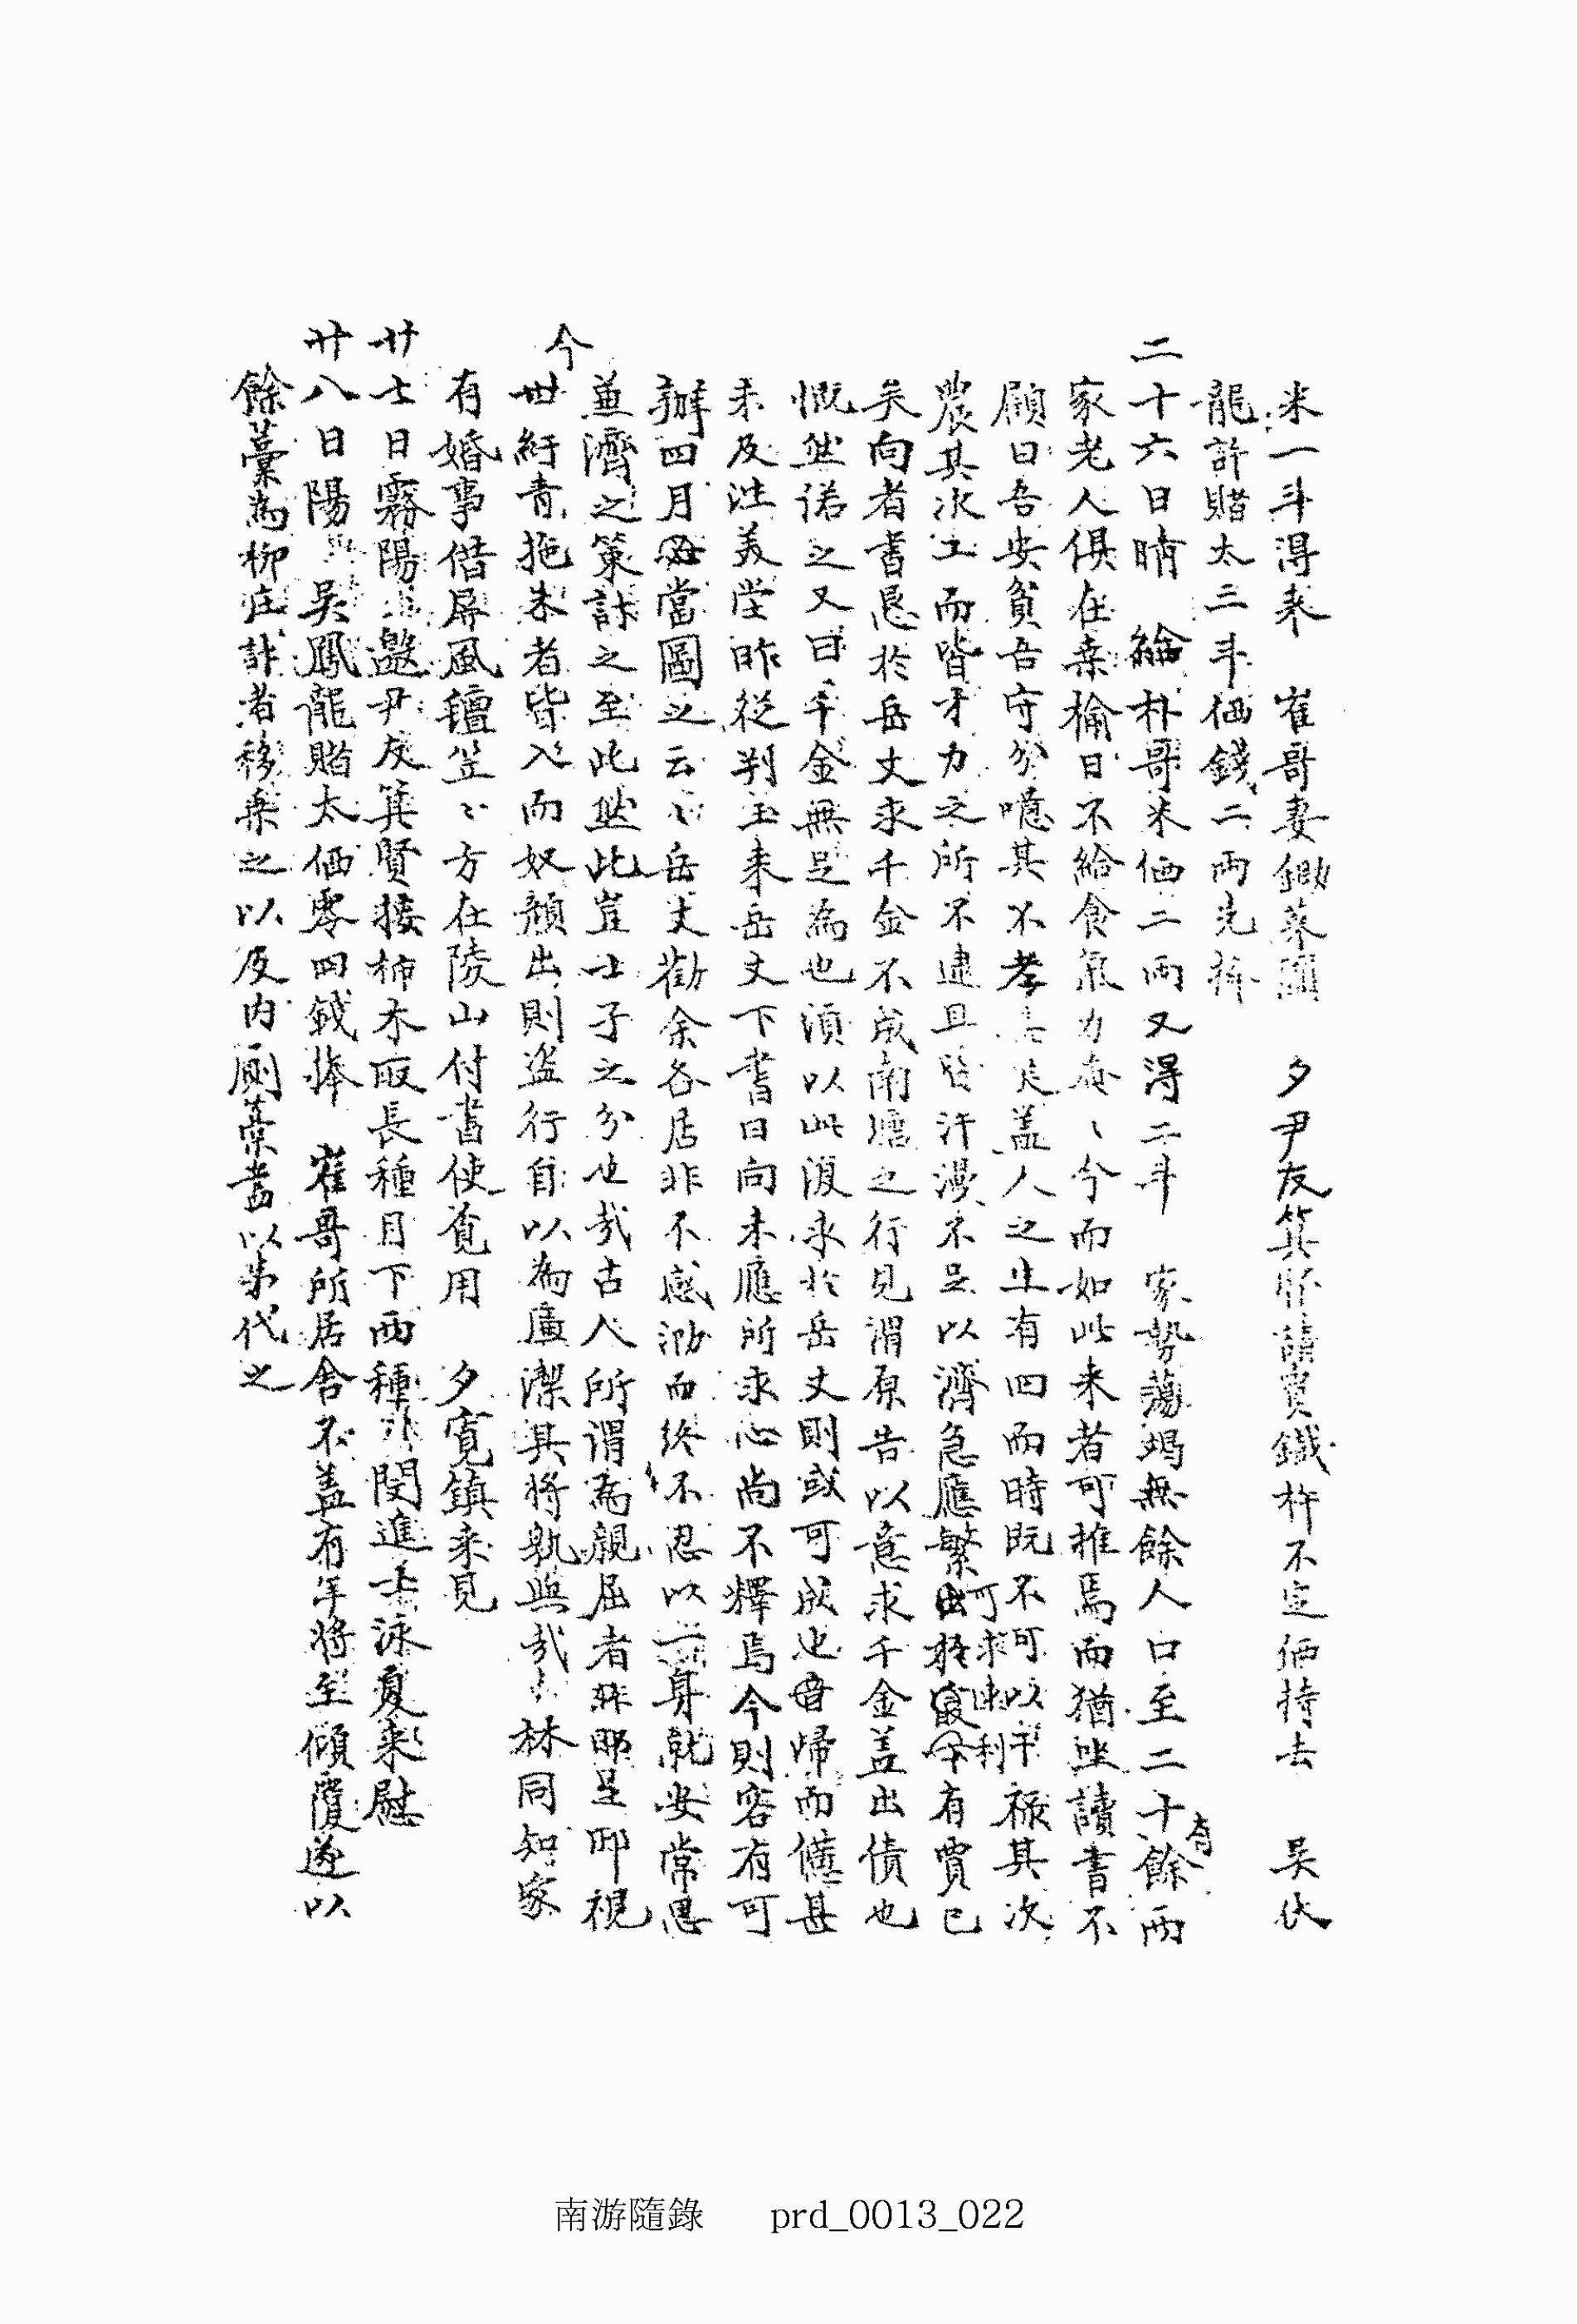 米一斗得来 崔哥妻鋤菜園 夕尹友箕賢請買鐵杵不定価持去 吴伏
龍許賭太三斗価錢二両先捧
二十六日晴 給朴哥米価二両又得二斗 家勢蕩竭無餘人口至二十餘而
家老人俱在桑榆日不給食氣力奄〻今而如此来者可推焉而猶坐讀書不
顧曰吾安貧吾守分噫其不孝甚矣盖人之生有四而時既不可以干祿其次
農其次工而皆才力之所不逮且皆汗漫不足以濟急應繁可求出利有賈已
矣向者書恳於岳丈求千金不成南塘之行見渭原告以意求千金盖出債也
慨然諾之又曰千金無足為也須以此復求於岳丈則或可成也帰而憊甚
未及注美堂昨從判玉来岳丈下書曰向未應所求心尚不釋焉今則容有可
辦四月當圖之云〻岳丈勸余各居非不感泐而終不忍以一身就安常思
並濟之策訃之至此然此豈士子之分也哉古人所謂為親屈者非耶是耶視
今世紆青拖朱者皆入而奴顏出則盗行自以為廉潔其將孰與哉 林同知家
有婚事借屏風氊笠〻方在陵山付書使覓用 夕寬鎮来見
廿七日霧陽 邀尹友箕賢接柿木取長種目下両種 閔進士泳夏来慰
廿八日陽 吴鳳龍賭太価零四戔捧 崔哥所居舍不盖有年將至傾覆遂以
餘藁為柳庄計者移束之以及内廁葉書以第代之